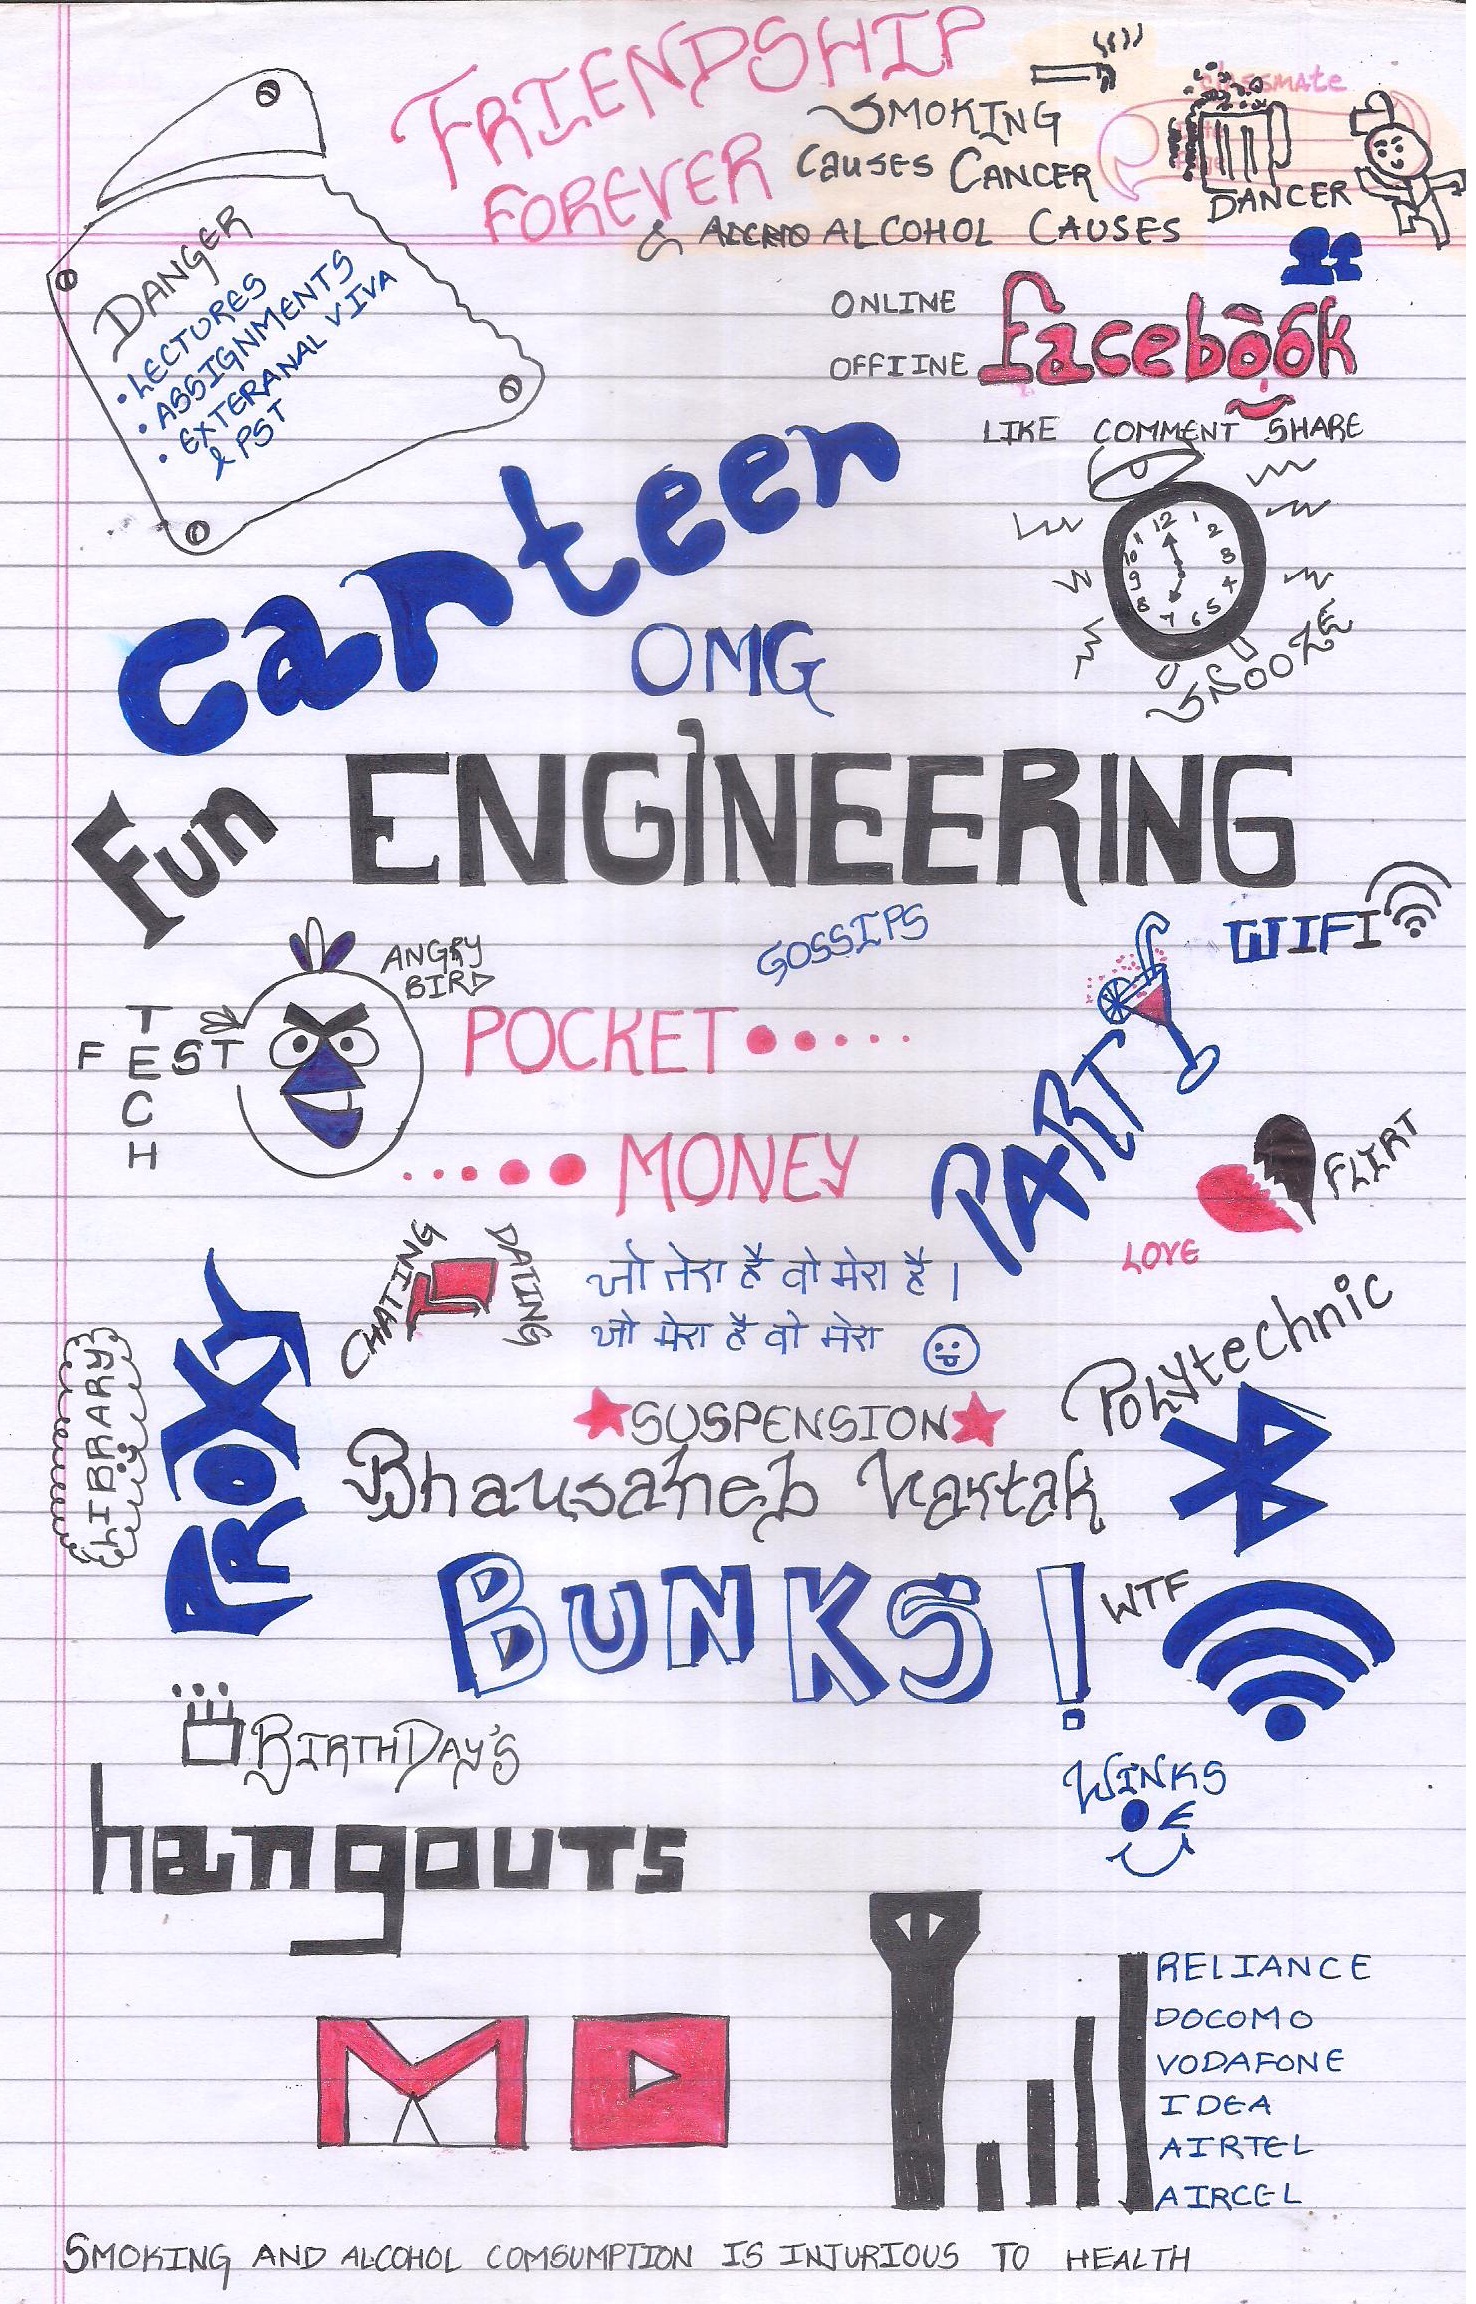 FRIENDSHIP
FOREVER
SMOKING
CAUSES CANCER
& ALCOHOL CAUSES
DANCER
classmate
DANGER
• LECTURES
• ASSIGNMENTS
• EXTERANAL VIVA
& PST
ONLINE
OFFIINE
facebook
LIKE COMMENT SHARE
canteen
12 1 2 3 4 5 6 7 8 9 10 11
SNOOZE
OMG
Fun
ENGINEERING
GOSSIPS
WIFI
ANGRY
BIRD
TECH
FEST
POCKET
MONEY
PARTY
FLIRT
LOVE
CHATING
DATING
जो तेरा है वो मेरा है।
जो मेरा है वो मेरा
LIBRARY
PROXY
Polytechnic
SUSPENSION
Bhausaheb Vartak
BUNKS!
WTF
BIRTHDAY'S
WINKS
hangouts
RELIANCE
DOCOMO
VODAFONE
IDEA
AIRTEL
AIRCEL
SMOKING AND ALCOHOL COMSUMPTION IS INJURIOUS TO HEALTH